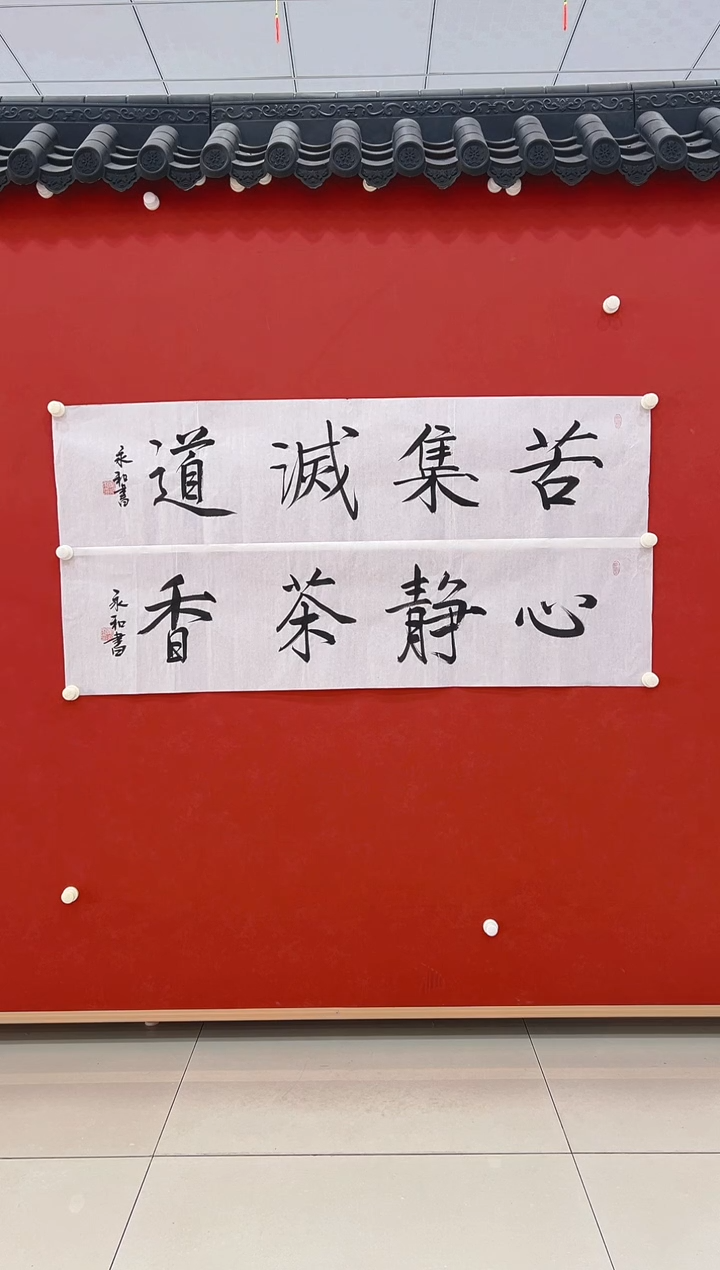 苦集滅道
永和書
心静茶香
永和書